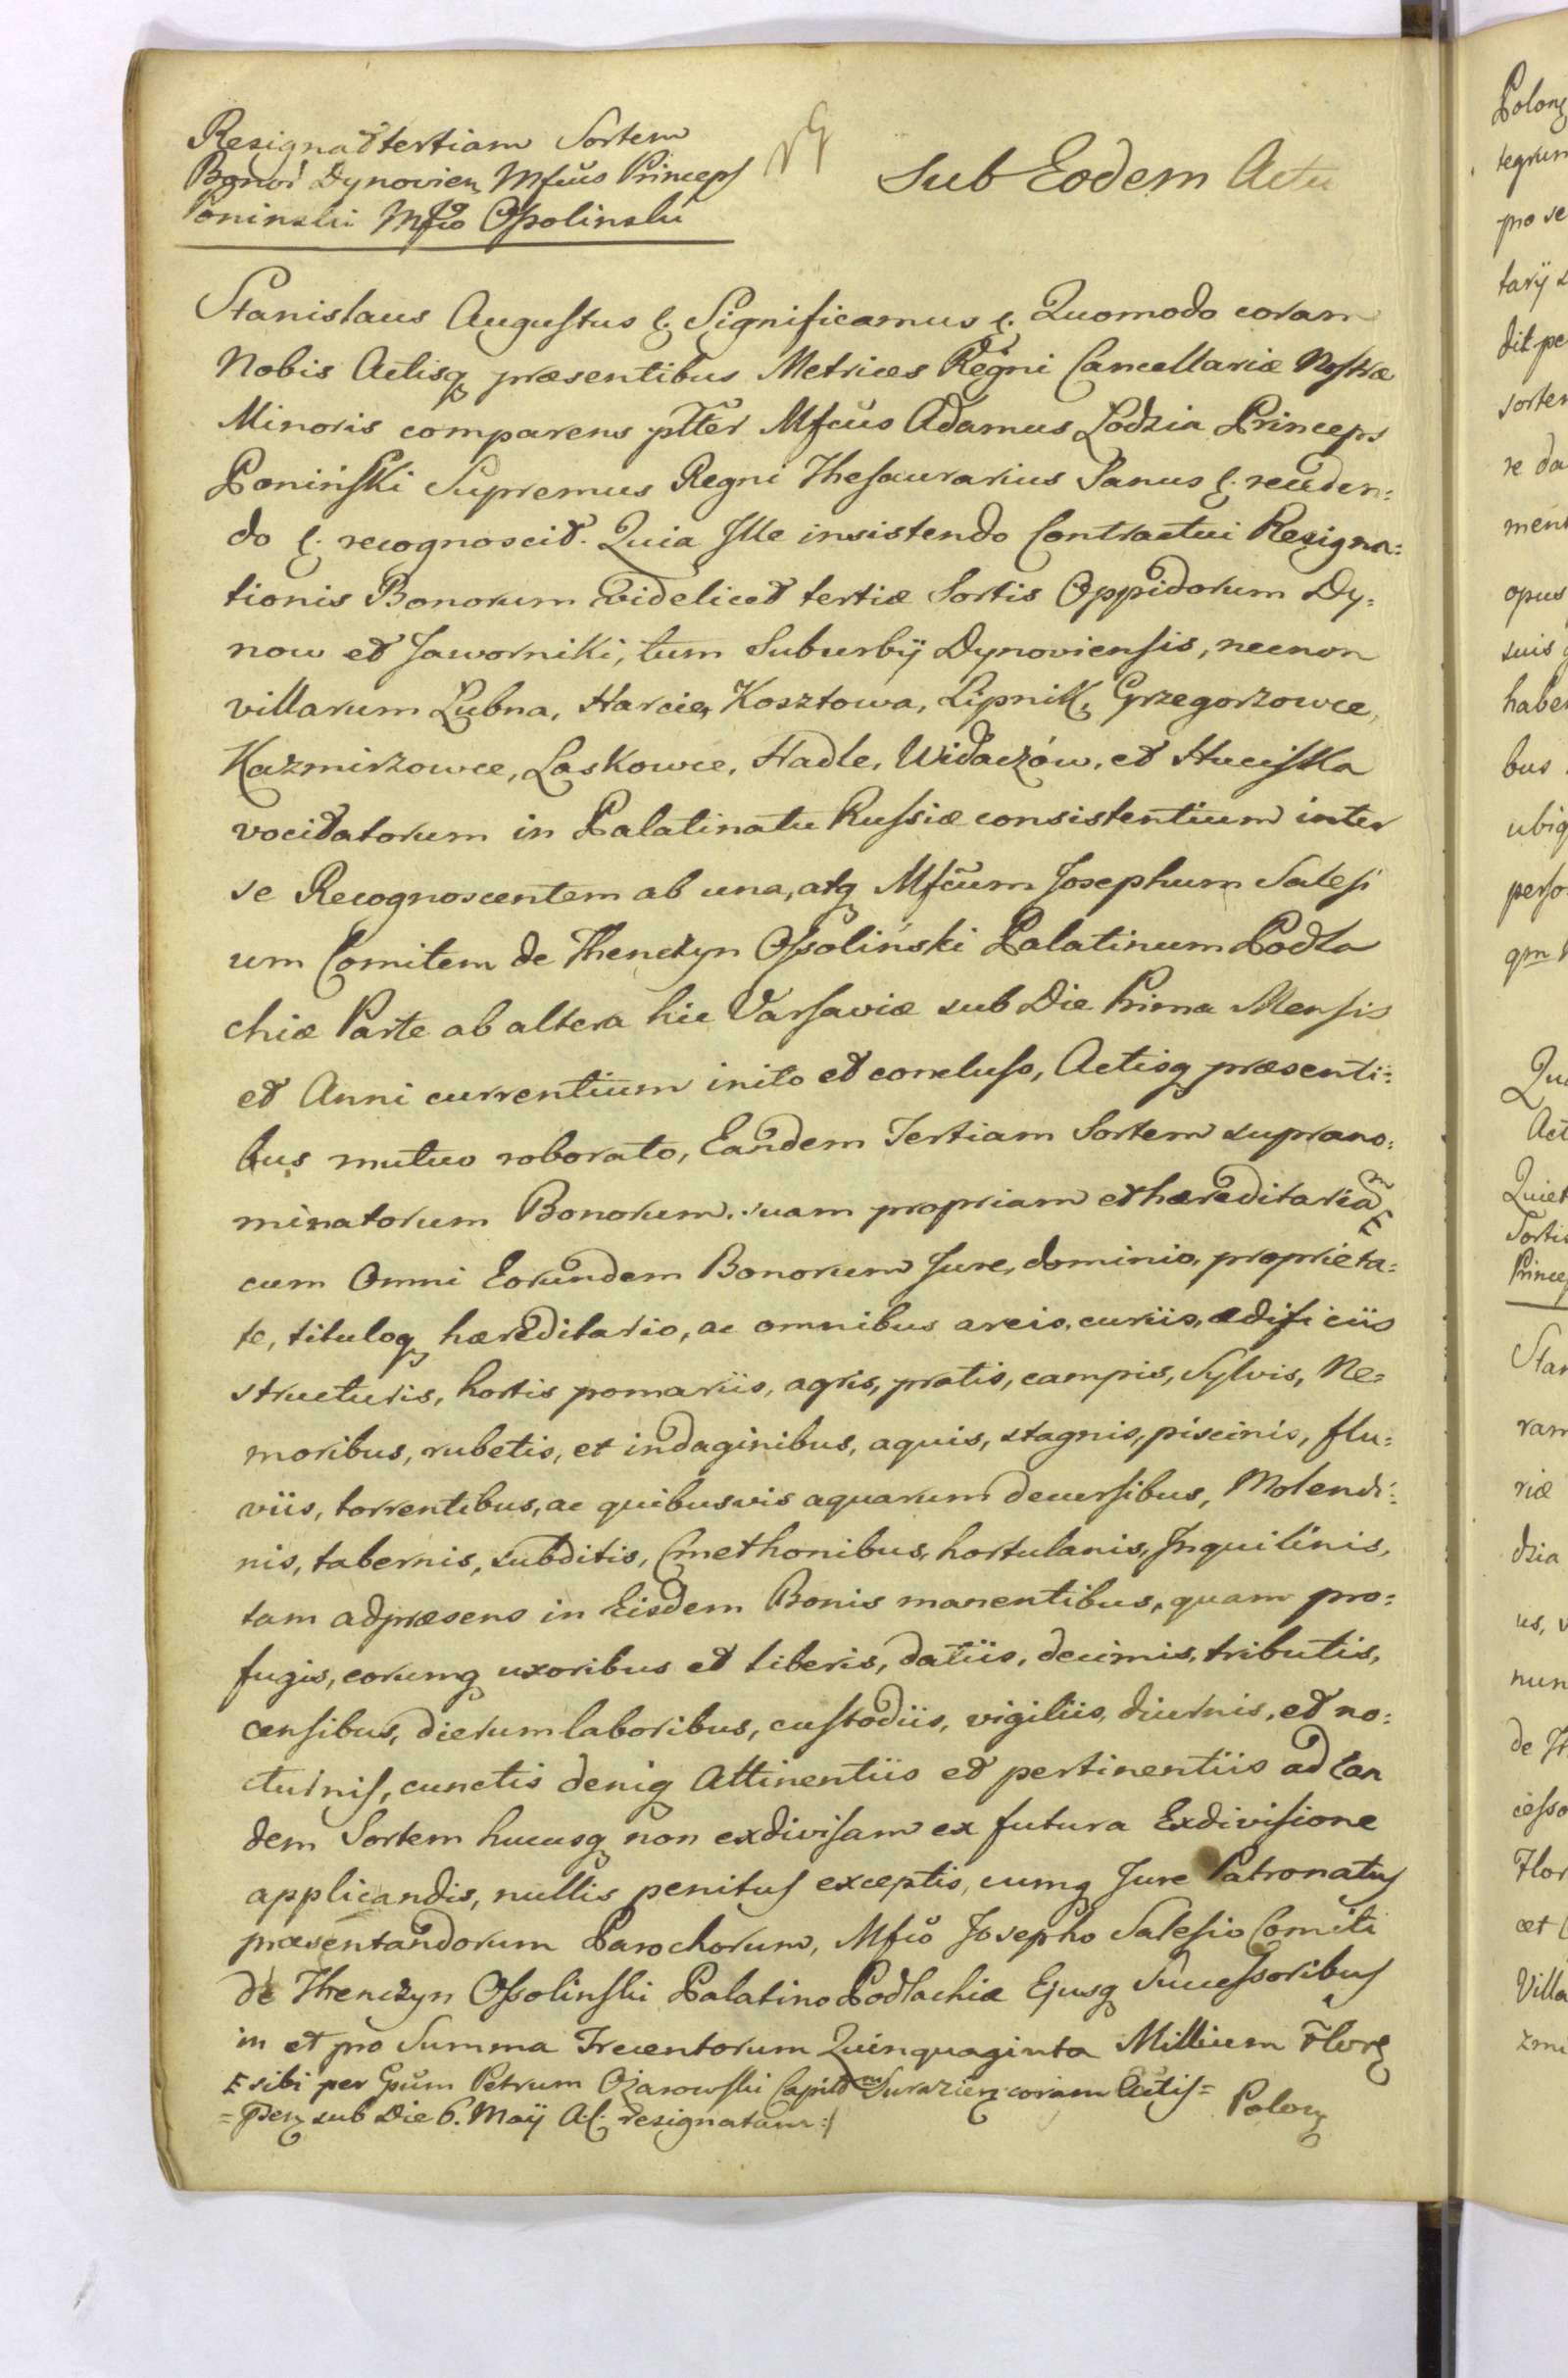 Resignat tertiam Sortem
Bonor Dynovien Mfcus Princeps
Poninski Mfco Ossolinski
Sub Eodem Actu
Stanislaus Augustus &. Significamus &. Quomodo coram
Nobis Actisq præsentibus Metrices Regni Cancellariæ Nostræ
Minoris comparens pltter Mfcus Adamus Lodzia Princeps
Poniński Supremus Regni Thesaurarius Sanus &. receden=
do &. recognoscit. Quia Ille insistendo Contractui Resigna=
tionis Bonorum videlicet tertiæ Sortis Oppidorum Dy=
now et Jaworniki, tum Suburbÿ Dynoviensis, necnon
villarum Łubna, Harcie, Kosztowa, Lipnik, Grzegorzowce,
Kazmirzowce, Laskowce, Hadle, Widaczów, et Huciska
vocitatorum in Palatinatu Russiæ consistentium inter
se Recognoscentem ab una, atq Mfcum Josephum Salesi
um Comitem de Thenczyn Ossoliński Palatinum Podla
chiæ Parte ab altera hic Varsaviæ sub Die Prima Mensis
et Anni currentium inito et concluso, Actisq præsenti=
bus mutuo roborato, Eandem Tertiam Sortem suprano=
minatorum Bonorum suam propriam et hæreditariam
cum Omni Eorundem Bonorum Jure, dominio, proprieta=
te, tituloq hæreditario, ac omnibus areis, curiis, ædificiis
structuris, hortis pomariis, agris, pratis, campis, Sylvis, Ne=
moribus, rubetis, et indaginibus, aquis, stagnis, piscinis, flu=
viis, torrentibus, ac quibusvis aquarum decursibus, Molendi=
nis, tabernis, subditis, Cmethonibus, hortulanis, Inquilinis,
tam adpræsens in Eisdem Bonis manentibus, quam pro=
fugis, eorumq uxoribus et liberis, datiis, decimis, tributis,
censibus, dierum laboribus, custodiis, vigiliis, diurnis, et no=
cturnis, cunctis deniq Attinentiis et pertinentiis ad Ean
dem Sortem hucusq non exdivisam ex futura Exdivisione
applicandis, nullis penitus exceptis, cumq Jure Patronatus
præsentandorum Parochorum, Mfco Josepho Salesio Comiti
de Thenczyn Ossolinski Palatino Podlachiæ Ejusq Successoribus
in et pro Summa Trecentorum Quinquaginta Millium Flor
E sibi per Gsum Petrum Ożarowski Capit Surazien coram Actis=
=Psen sub Die 6. Maÿ A. C. resignatam :/
Polon